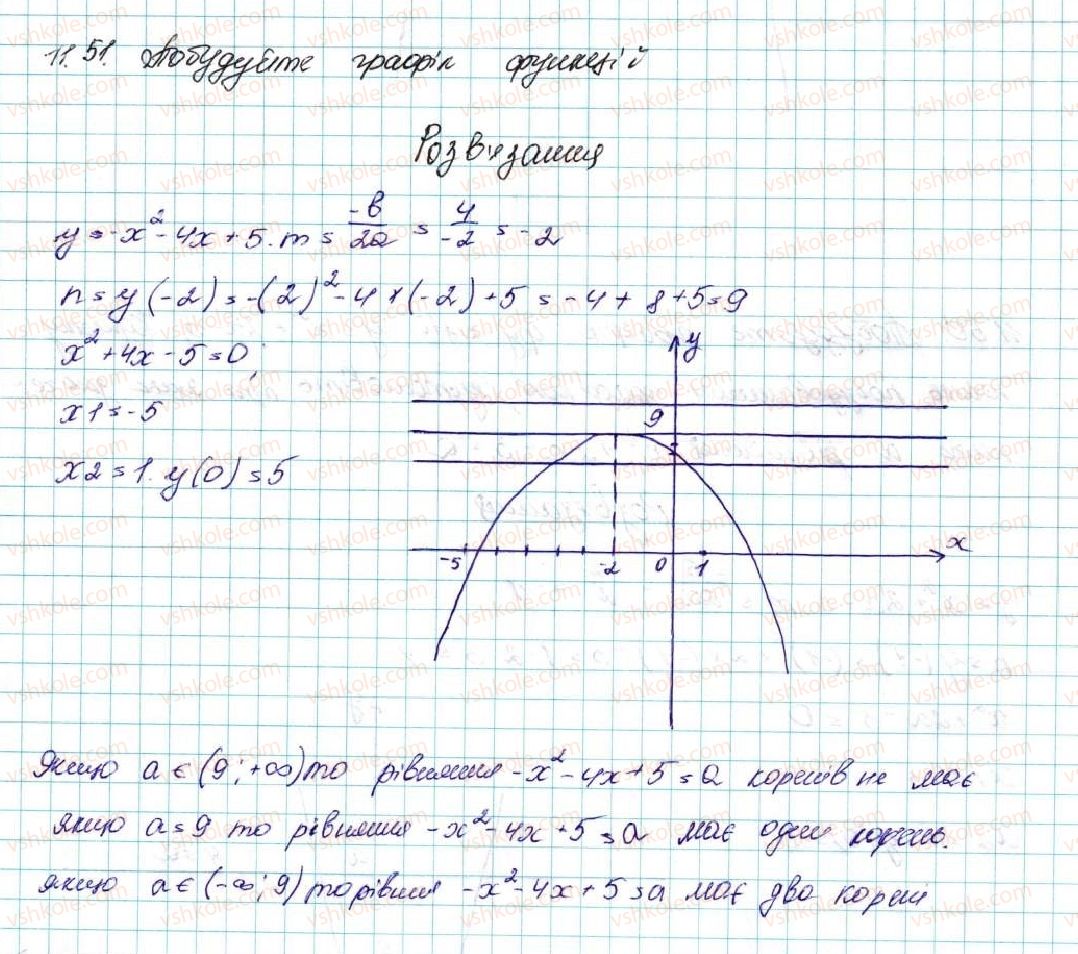 11.51. Побудуйте графік функцій
Розвязання
y = -x² - 4x + 5. m = -b/2a = 4/-2 = -2
n = y(-2) = -(2)² - 4 × (-2) + 5 = -4 + 8 + 5 = 9
x² + 4x - 5 = 0;
x1 = -5
x2 = 1. y(0) = 5
y
9
x
-5
-2
0
1
Якщо a ∈ (9; +∞) то рівняння -x² - 4x + 5 = a коренів не має
якщо a = 9 то рівняння -x² - 4x + 5 = a має один корень.
якщо a ∈ (-∞; 9) то рівння -x² - 4x + 5 = a має два корені